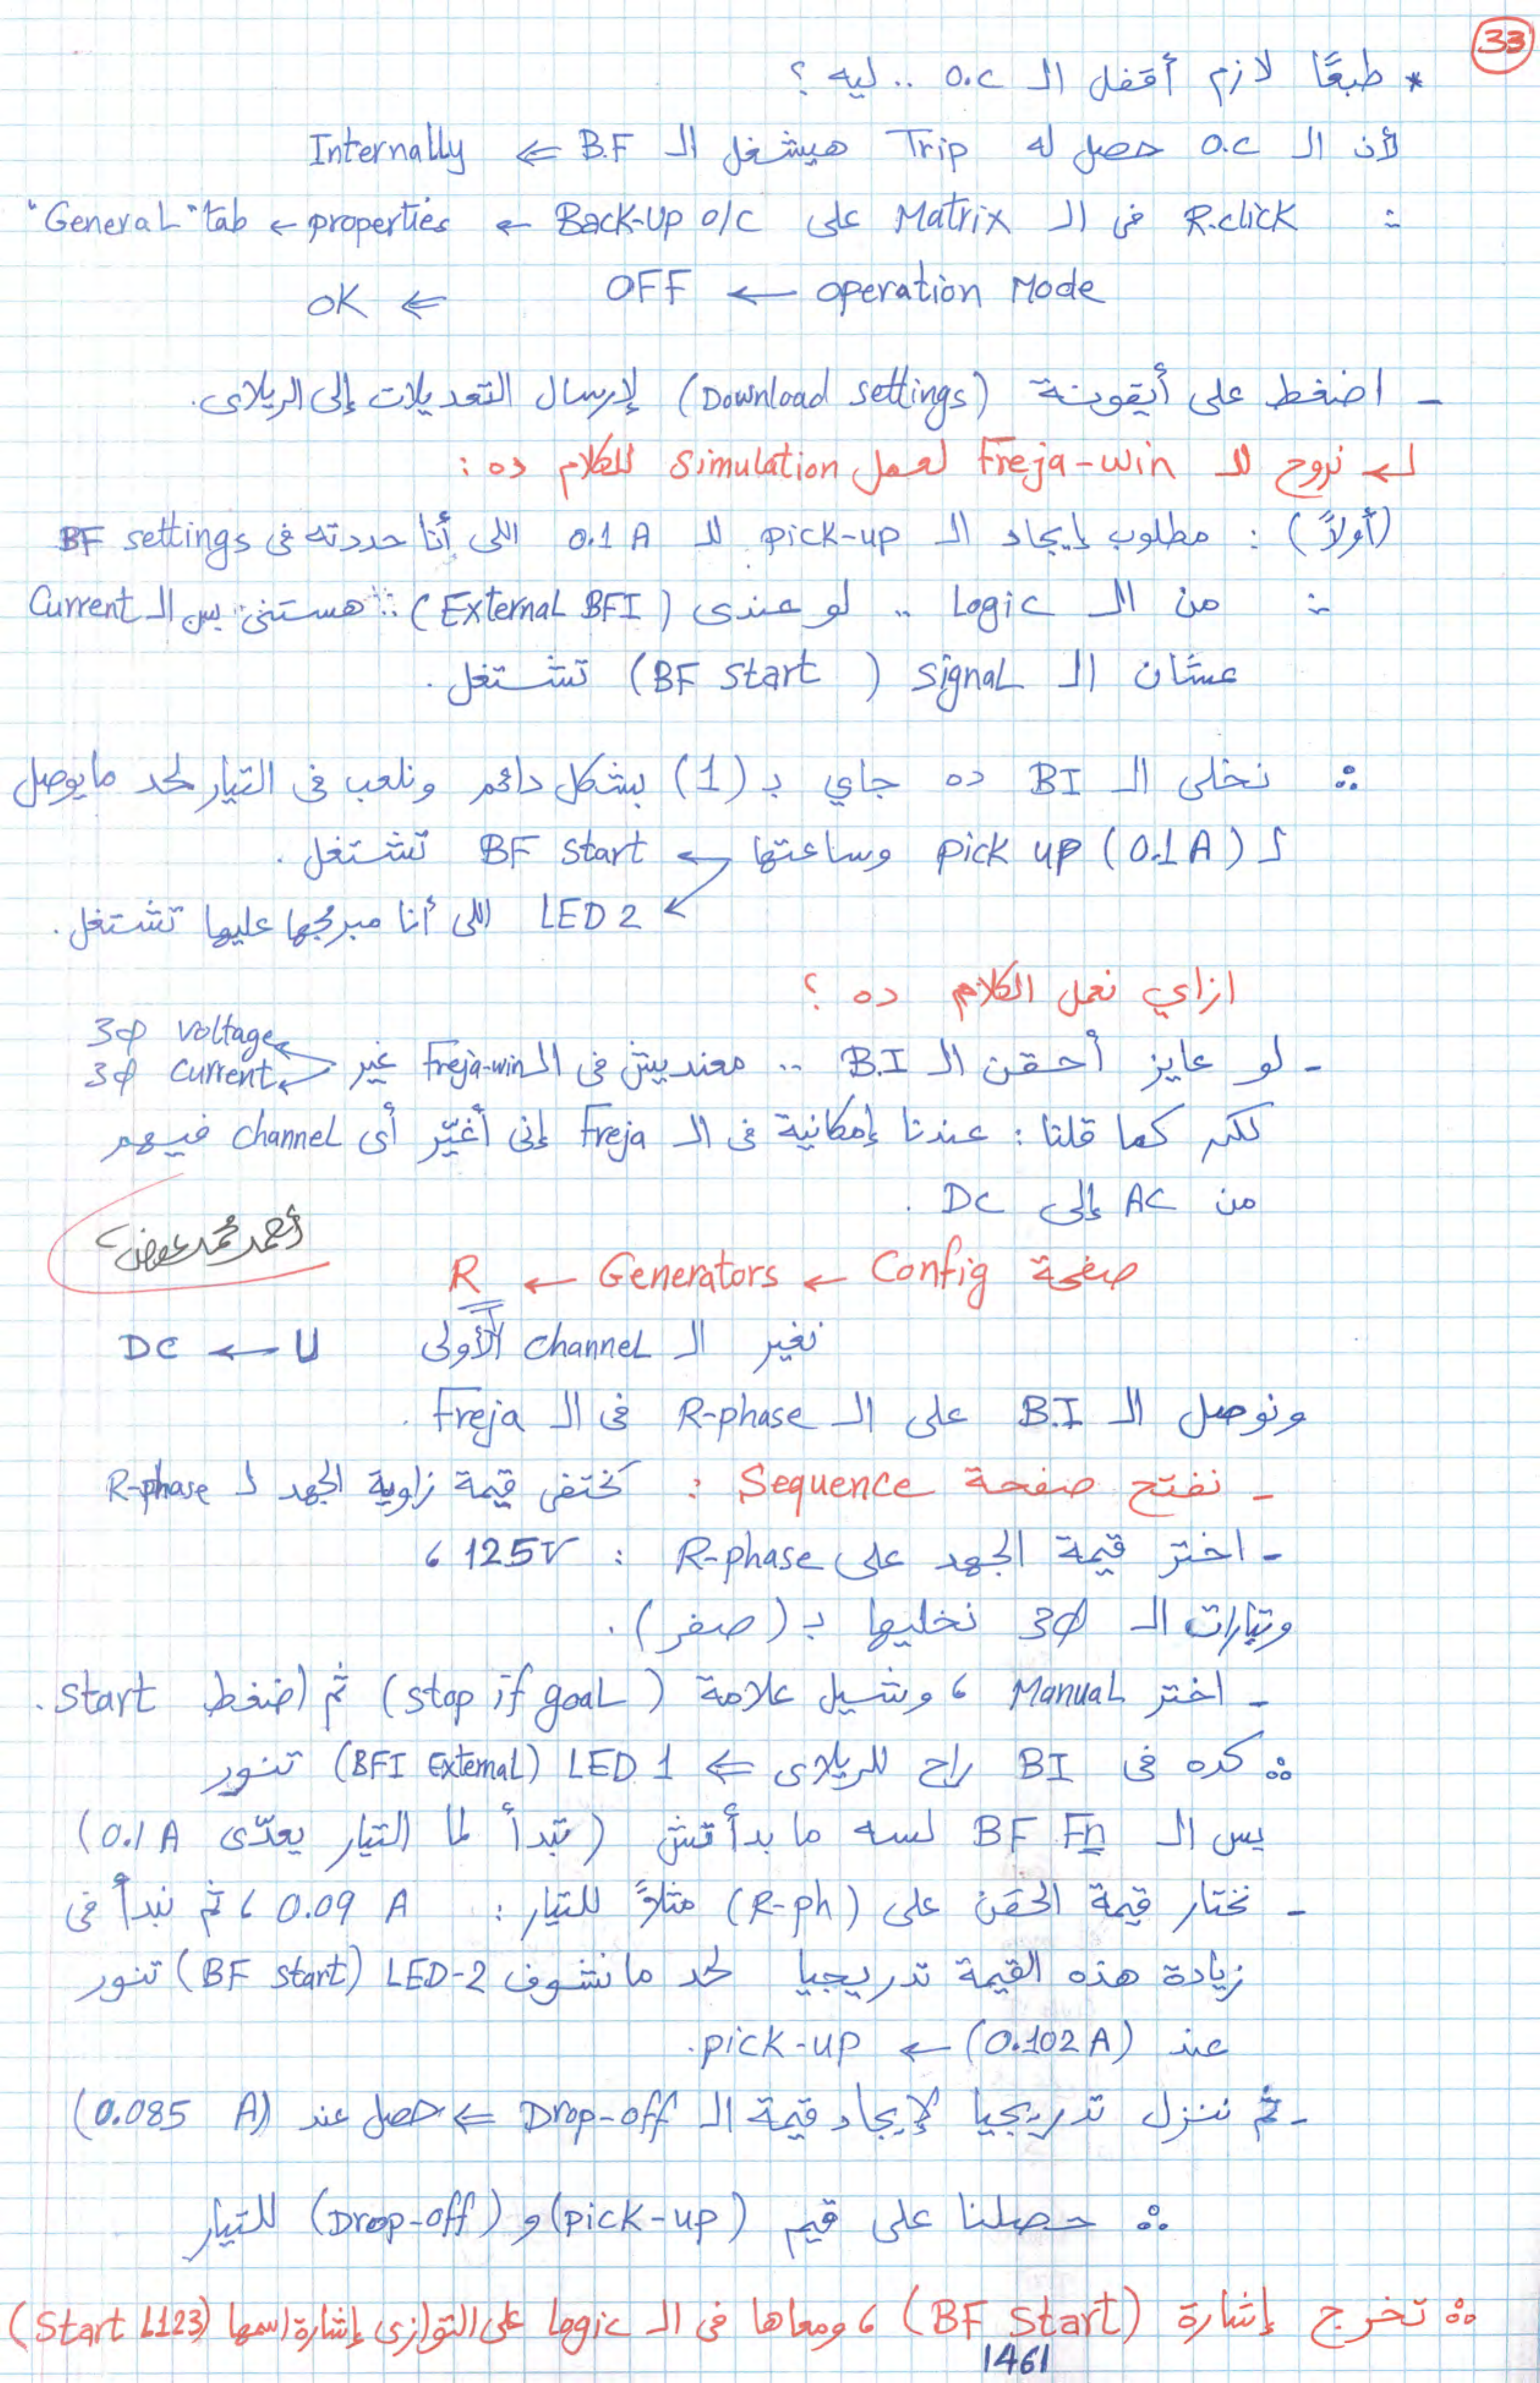 33
* طبعًا لازم أقفل الـ O.C .. ليه ؟
لأن الـ O.C حصل له Trip هيشغل الـ B.F ⇐ Internally
∴ R.click فى الـ Matrix على Back-Up O/C ← properties ← "General" tab
operation Mode ← OFF ⇐ OK
- اضغط على أيقونة (Download settings) لإرسال التعديلات إلى الريلاى.
نروح للـ Freja-win لعمل simulation للكلام ده :
(أولاً) : مطلوب إيجاد الـ pick-up للـ 0.1 A اللى أنا حددته فى BF settings
∴ من الـ Logic .. لو عندى (External BFI) ∴ هستنى بس الـ Current
عشان الـ signal (BF start) تشتغل .
∴ نخلى الـ BI ده جاي بـ (1) بشكل دائم ونلعب فى التيار لحد ما يوصل
لـ pick up (0.1 A) وساعتها ← BF start تشتغل .
LED 2 اللى أنا مبرمجها عليها تشتغل .
ازاي نعمل الكلام ده ؟
- لو عايز أحقن الـ B.I .. معنديش فى الـ Freja-win غير 3φ voltage
3φ current
لكن كما قلنا : عندنا إمكانية فى الـ Freja إنى أغيّر أى channel فيهم
من AC إلى DC .
أحمد محمد عوض
صفحة Config ← Generators ← R
نغير الـ channel الأولى U ← DC
ونوصل الـ B.I على الـ R-phase فى الـ Freja .
- نفتح صفحة Sequence : تختفى قيمة زاوية الجهد لـ R-phase
- اختر قيمة الجهد على R-phase : 125V ،
وتيارات الـ 3φ نخليها بـ (صفر) .
- اختر Manual ، وشيل علامة (stop if goal) ثم اضغط start .
∴ كده فى BI راح للريلاى ⇐ LED 1 (BFI External) تنور
بس الـ BF Fn لسه ما بدأتش (تبدأ لما التيار يعدّى 0.1 A)
- نختار قيمة الحقن على (R-ph) مثلاً للتيار : 0.09 A ، ثم نبدأ فى
زيادة هذه القيمة تدريجيا لحد ما نشوف LED-2 (BF start) تنور
عند (0.102 A) ← pick-up.
- ثم ننزل تدريجيا لإيجاد قيمة الـ Drop-off ⇐ حصل عند (0.085 A)
∴ حصلنا على قيم (pick-up) و (Drop-off) للتيار
∴ تخرج إشارة (BF Start) ، ومعاها فى الـ logic على التوازى إشارة اسمها (Start L123)
1461